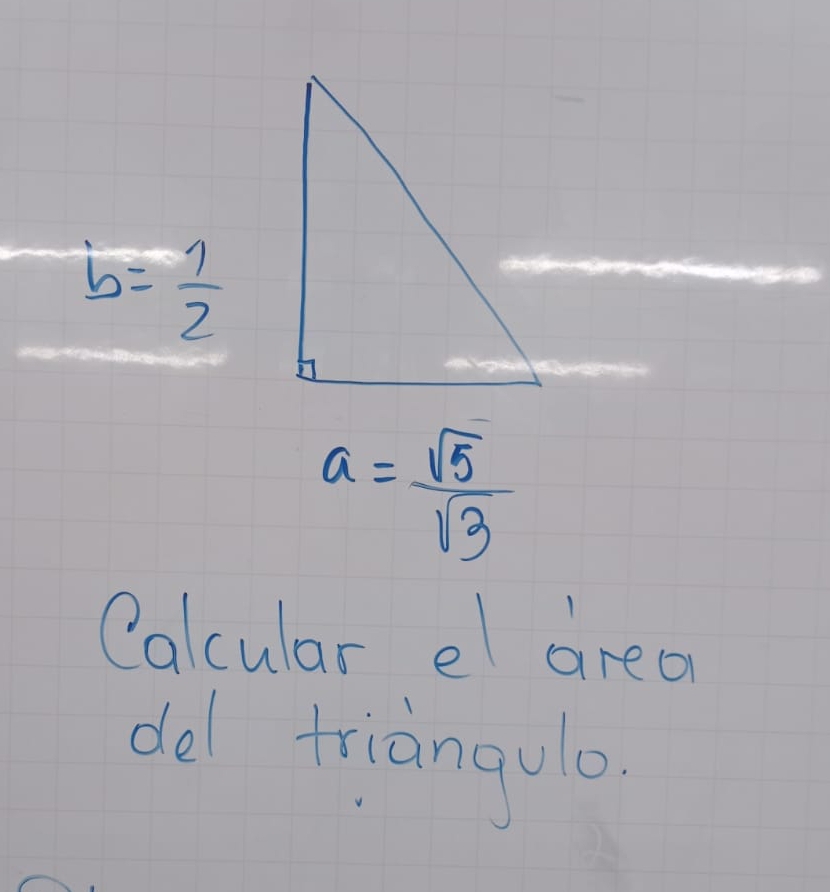 b = 1/2
a = √5/√3
Calcular el área
del triàngulo.